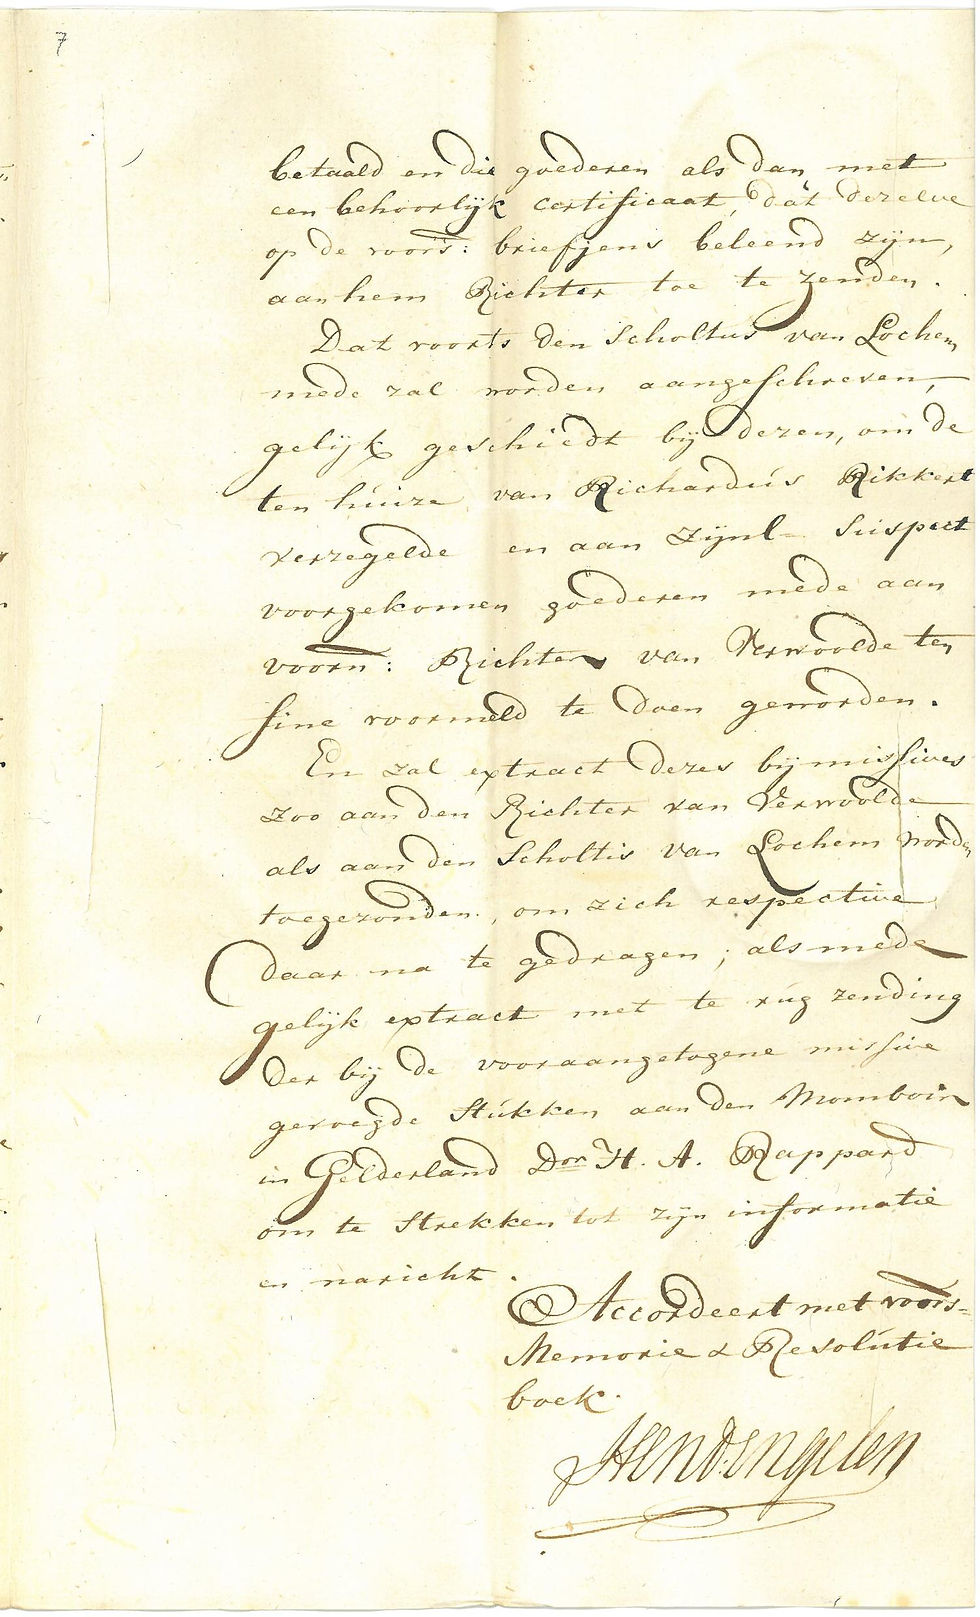 7
betaald en die goederen als dan met
een behoorlijk certificaat, dat dezelve
op de voors: briefjens beleend zijn,
aan hem Richter toe te zenden.
Dat voorts den Scholtus van Lochem
mede zal worden aangeschreven,
gelijk geschiedt bij dezen, om de
ten huize van Richardus Rikkert
verzegelde en aan zijnl suspect
voorgekomen goederen mede aan
voorn: Richter van Verwoolde ten
fine voormeld te doen geworden.
En zal extract dezes bij missives
zoo aan den Richter van Verwoolde
als aan den Scholtis van Lochem worden
toegezonden, om zich respective
daar na te gedragen; als mede
gelijk extract met te rug zending
der bij de vooraangetogene missive
gevoegde Stukken aan den Momboir
in Gelderland Dor H. A. Rappard
om te strekken tot zijn informatie
en naricht.
Accordeert met voors-
Memorie & Resolutie
boek.